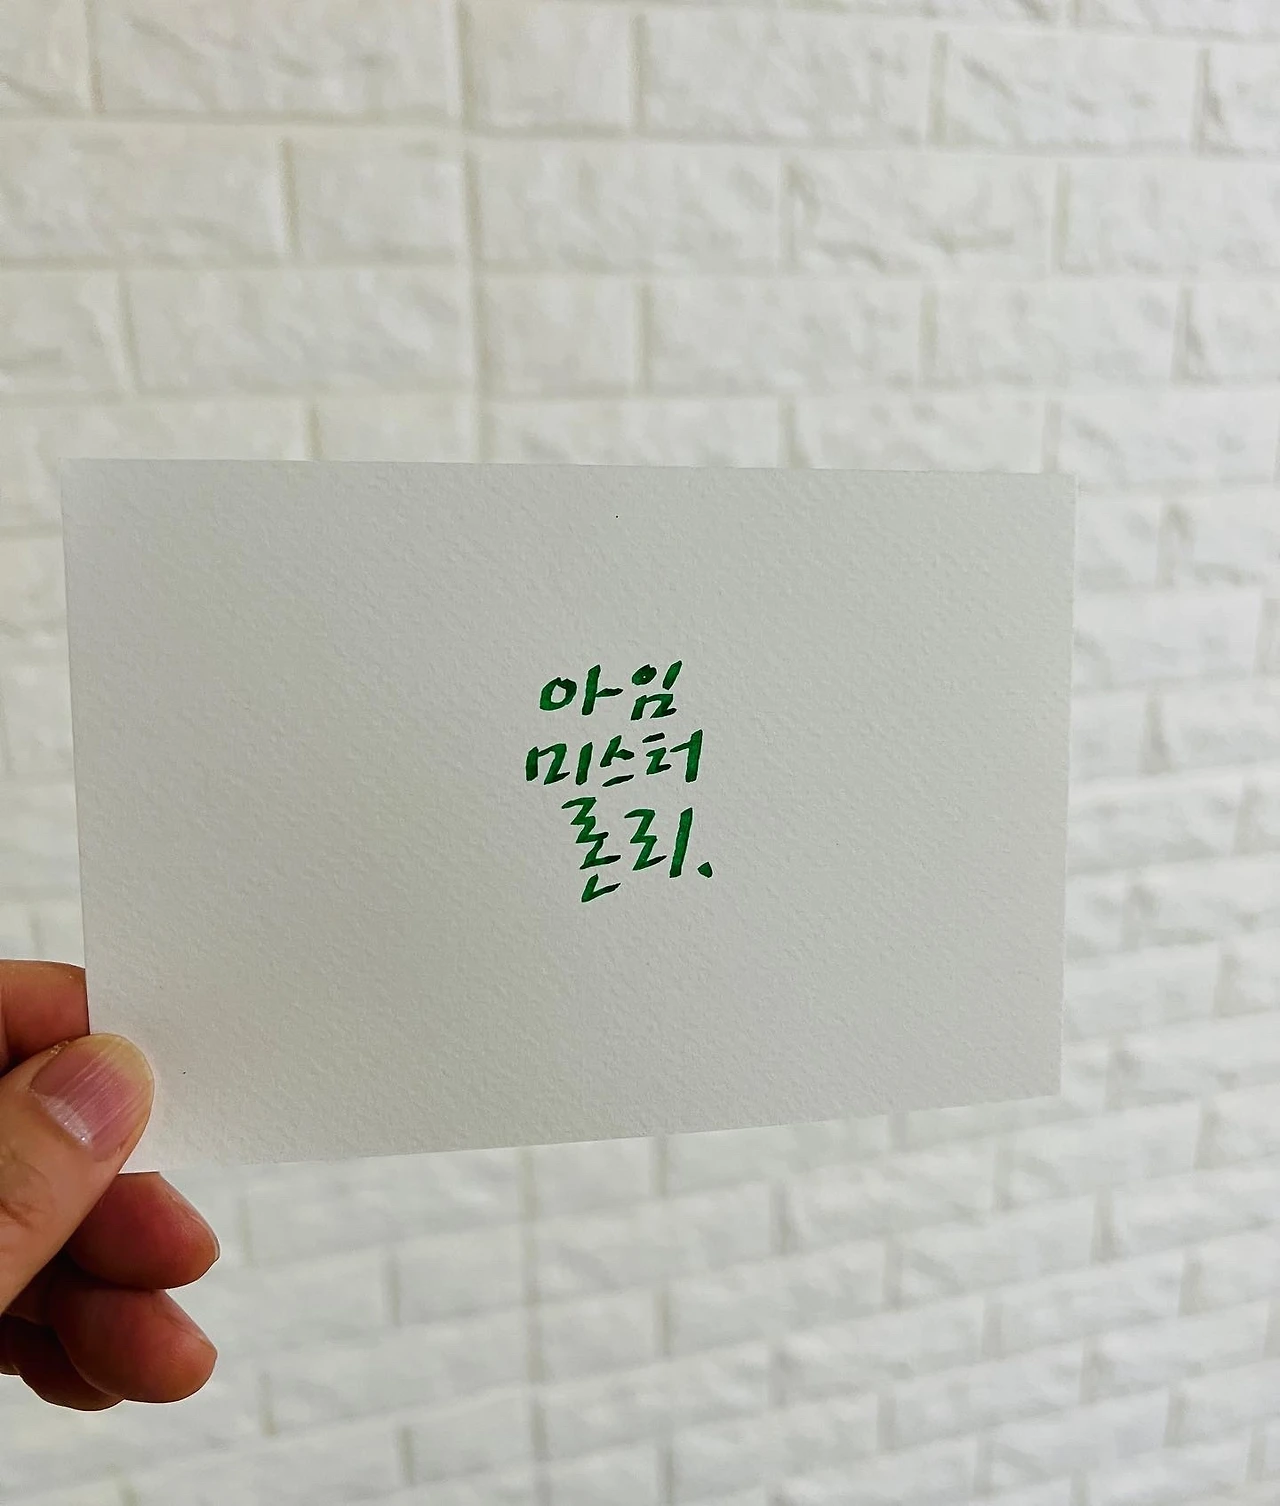 아임
미스터
론리.